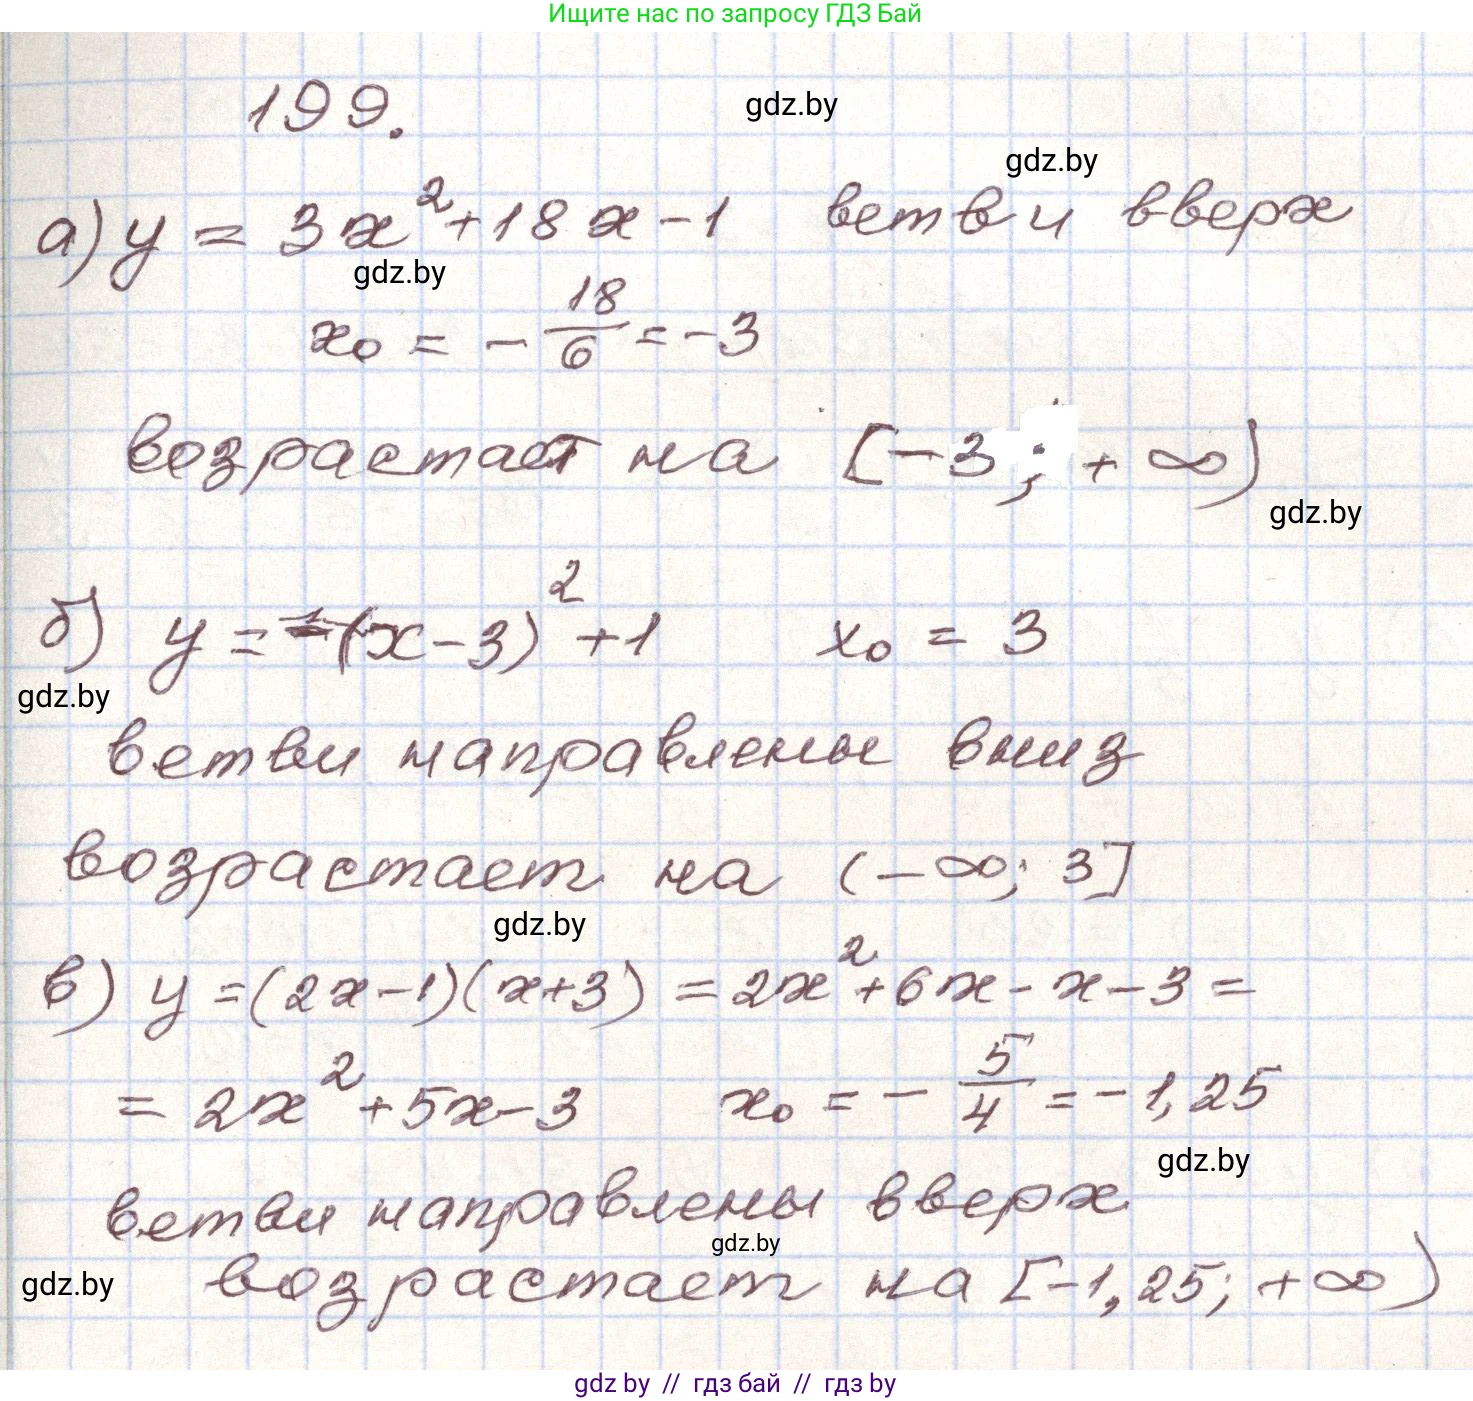 Ищите нас по запросу ГДЗ Бай
199.
gdz.by
gdz.by
а) y = 3x² + 18x - 1 ветви вверх
gdz.by
x₀ = - 18/6 = -3
возрастает на [-3; +∞)
gdz.by
б) y = -(x-3)² + 1 x₀ = 3
gdz.by
ветви направлены вниз
возрастает на (-∞; 3]
gdz.by
в) y = (2x-1)(x+3) = 2x² + 6x - x - 3 =
= 2x² + 5x - 3 x₀ = - 5/4 = -1,25
gdz.by
ветви направлены вверх
gdz.by
gdz.by
возрастает на [-1,25; +∞)
gdz by // гдз бай // гдз by